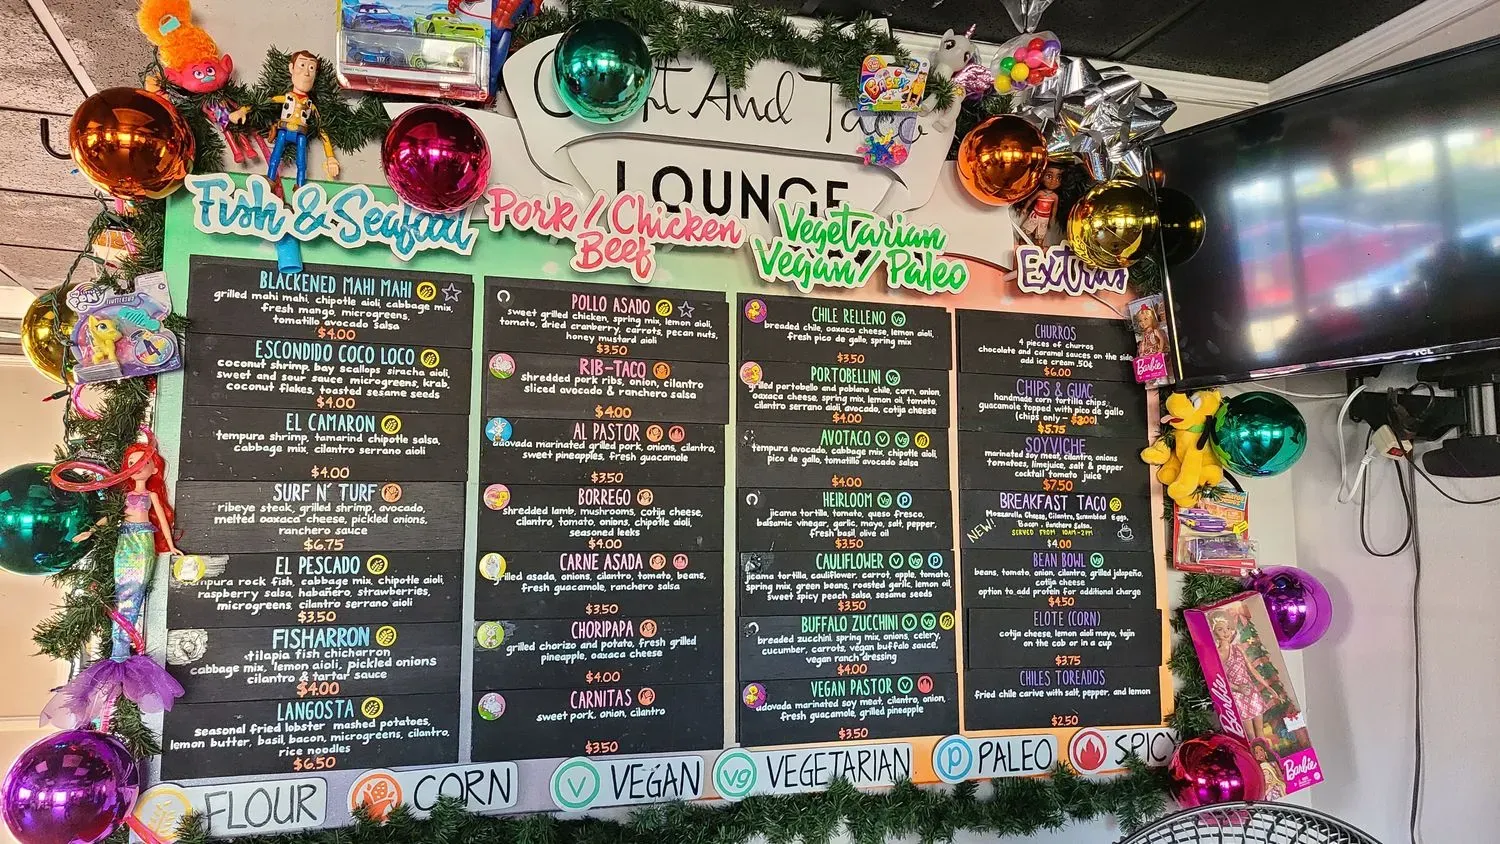 And Taco
LOUNGE
Fish & Seafood
BLACKENED MAHI MAHI
grilled mahi mahi, chipotle aioli, cabbage mix,
fresh mango, microgreens,
tomatillo avocado salsa
$4.00
ESCONDIDO COCO LOCO
coconut shrimp, bay scallops siracha aioli,
sweet and sour sauce microgreens, krab,
coconut flakes, toasted sesame seeds
$4.00
EL CAMARON
tempura shrimp, tamarind chipotle salsa,
cabbage mix, cilantro serrano aioli
$4.00
SURF N' TURF
ribeye steak, grilled shrimp, avocado,
melted oaxaca cheese, pickled onions,
ranchero sauce
$6.75
EL PESCADO
mpura rock fish, cabbage mix, chipotle aioli,
raspberry salsa, habañero, strawberries,
microgreens, cilantro serrano aioli
$3.50
FISHARRON
tilapia fish chicharron
cabbage mix, lemon aioli, pickled onions
cilantro & tartar sauce
$4.00
LANGOSTA
seasonal fried lobster mashed potatoes,
lemon butter, basil, bacon, microgreens, cilantro,
rice noodles
$6.50
Pork / Chicken
Beef
POLLO ASADO
sweet grilled chicken, spring mix, lemon aioli,
tomato, dried cranberry, carrots, pecan nuts,
honey mustard aioli
$3.50
RIB-TACO
shredded pork ribs, onion, cilantro
sliced avocado & ranchero salsa
$4.00
AL PASTOR
adovada marinated grilled pork, onions, cilantro,
sweet pineapples, fresh guacamole
$3.50
BORREGO
shredded lamb, mushrooms, cotija cheese,
cilantro, tomato, onions, chipotle aioli,
seasoned leeks
$4.00
CARNE ASADA
grilled asada, onions, cilantro, tomato, beans,
fresh guacamole, ranchero salsa
$3.50
CHORIPAPA
grilled chorizo and potato, fresh grilled
pineapple, oaxaca cheese
$4.00
CARNITAS
sweet pork, onion, cilantro
$3.50
Vegetarian
Vegan / Paleo
CHILE RELLENO vg
breaded chile, oaxaca cheese, lemon aioli,
fresh pico de gallo, spring mix
$3.50
PORTOBELLINI vg
grilled portobello and poblano chile, corn, onion,
oaxaca cheese, spring mix, lemon oil, tomato,
cilantro serrano aioli, avocado, cotija cheese
$4.00
AVOTACO V vg
tempura avocado, cabbage mix, chipotle aioli,
pico de gallo, tomatillo avocado salsa
$4.00
HEIRLOOM vg P
jicama tortilla, tomato, queso fresco,
balsamic vinegar, garlic, mayo, salt, pepper,
fresh basil, olive oil
$3.50
CAULIFLOWER V vg P
jicama tortilla, cauliflower, carrot, apple, tomato,
spring mix, green beans, roasted garlic, lemon oil,
sweet spicy peach salsa, sesame seeds
$3.50
BUFFALO ZUCCHINI V vg
breaded zucchini, spring mix, onions, celery,
cucumber, carrots, vegan buffalo sauce,
vegan ranch dressing
$4.00
VEGAN PASTOR V
adovada marinated soy meat, cilantro, onion,
fresh guacamole, grilled pineapple
$3.50
Extras
CHURROS
4 pieces of churros
chocolate and caramel sauces on the side
add ice cream 50¢
$6.00
CHIPS & GUAC
handmade corn tortilla chips,
guacamole topped with pico de gallo
(chips only - $3.00)
$5.75
SOYVICHE
marinated soy meat, cilantro, onions
tomatoes, limejuice, salt & pepper
cocktail tomato juice
$7.50
BREAKFAST TACO
Mozzarella Cheese, Cilantro, Scrambled Eggs,
Bacon, Ranchero Salsa.
NEW!
SERVED FROM 10AM-2PM
$4.00
BEAN BOWL vg
beans, tomato, onion, cilantro, grilled jalapeño,
cotija cheese
option to add protein for additional charge
$4.50
ELOTE (CORN)
cotija cheese, lemon aioli mayo, tajin
on the cob or in a cup
$3.75
CHILES TOREADOS
fried chile carive with salt, pepper, and lemon
$2.50
FLOUR
CORN
V VEGAN
vg VEGETARIAN
P PALEO
SPICY
Barbie
Barbie
Barbie
TCL